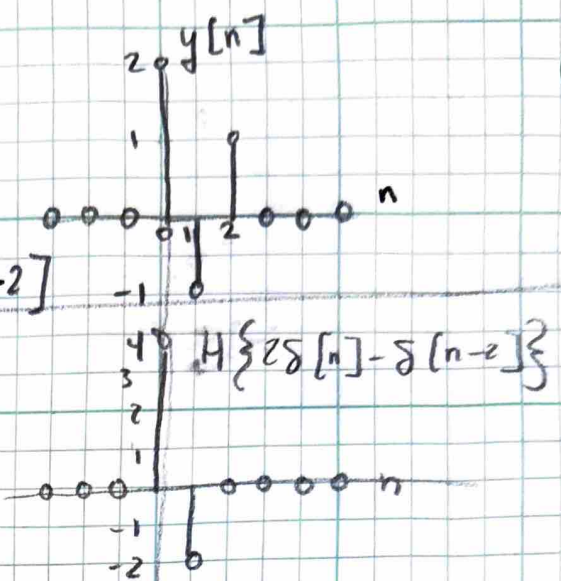 2 y[n]
1
n
0 1 2
-2]
-1
4 H{2δ[n]-δ[n-2]}
3
2
1
n
-1
-2